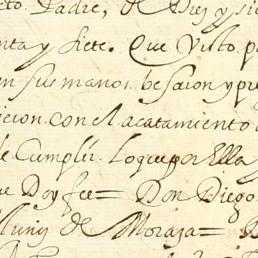 cto. Padre, de Diez y si
nta y siete. Que Visto p
en sus manos. besaron y pu
icion con el acatamiento
de Cumplir. Loque por Ella
ue Doy fee= Don Diego
lluny de Moraga=